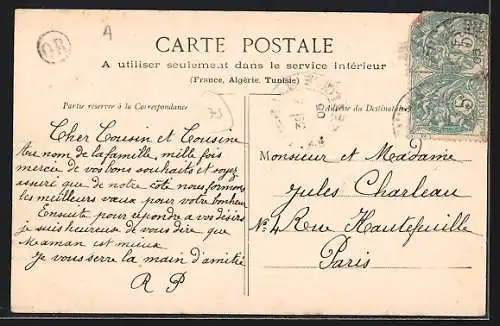 OR
A
CARTE POSTALE
A utiliser seulement dans le service intérieur
(France, Algérie, Tunisie)
Partie réservée à la Correspondance
Adresse du Destinataire
Cher Cousin et Cousine
Au nom de la famille, mille fois
merci de vos bons souhaits et soyez
assuré que de notre coté nous formons
les meilleurs vœux pour votre bonheur
Ensuite pour répondre a vos désirs
je suis heureux de vous dire que
Maman est mieux
Je vous serre la main d'amitié
R P
Monsieur et Madame
Jules Charleau
No 4 Rue Hautefuille
Paris
5
5